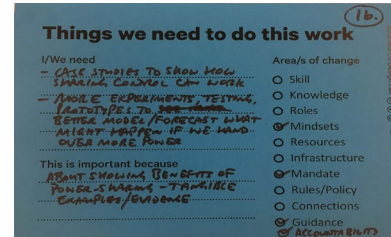 16.
Things we need to do this work
I/We need
- CASE STUDIES TO SHOW HOW
SHARING CONTROL CAN WORK
- MORE EXPERIMENTS, TESTING,
PROTOTYPES TO
BETTER MODEL/FORECAST WHAT
MIGHT HAPPEN IF WE HAND
OVER MORE POWER
This is important because
ABOUT SHOWING BENEFITS OF
POWER-SHARING - TANGIBLE
EXAMPLES/EVIDENCE
Area/s of change
Skill
Knowledge
Roles
Mindsets
Resources
Infrastructure
Mandate
Rules/Policy
Connections
Guidance
ACCOUNTABILITY